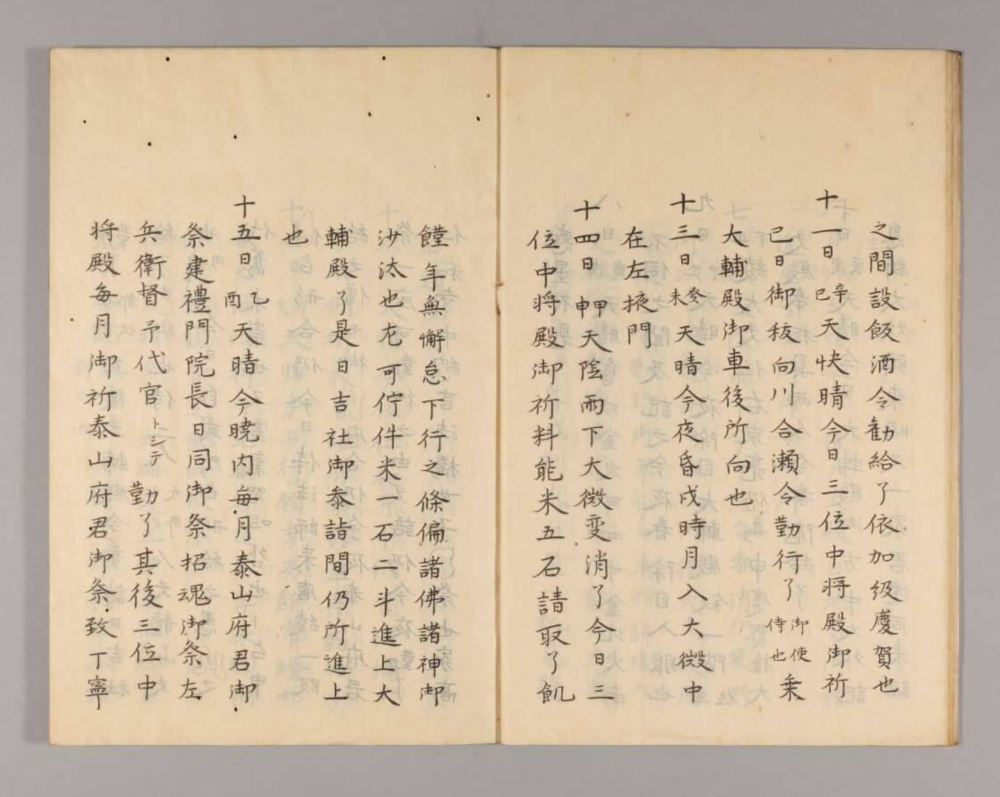 之間設飯酒令勧給了依加級慶賀也
十一日辛巳天快晴今日三位中将殿御祈
巳日御秡向川合瀬令勤行了御使侍也乗
大輔殿御車後所向也
十三日癸未天晴今夜昏戌時月入大微中
在左掖門
十四日甲申天陰雨下大微变消了今日三
位中将殿御祈料能米五石請取了飢
饉年無懈怠下行之條偏諸佛諸神御
沙汰也尤可佇件米一石二斗進上大
輔殿了是日吉社御参詣間仍所進上
也
十五日乙酉天晴今暁内毎月泰山府君御
祭建禮門院長日同御祭招魂御祭左
兵衛督予代官トシテ勤了其後三位中
将殿毎月御祈泰山府君御祭致丁寧